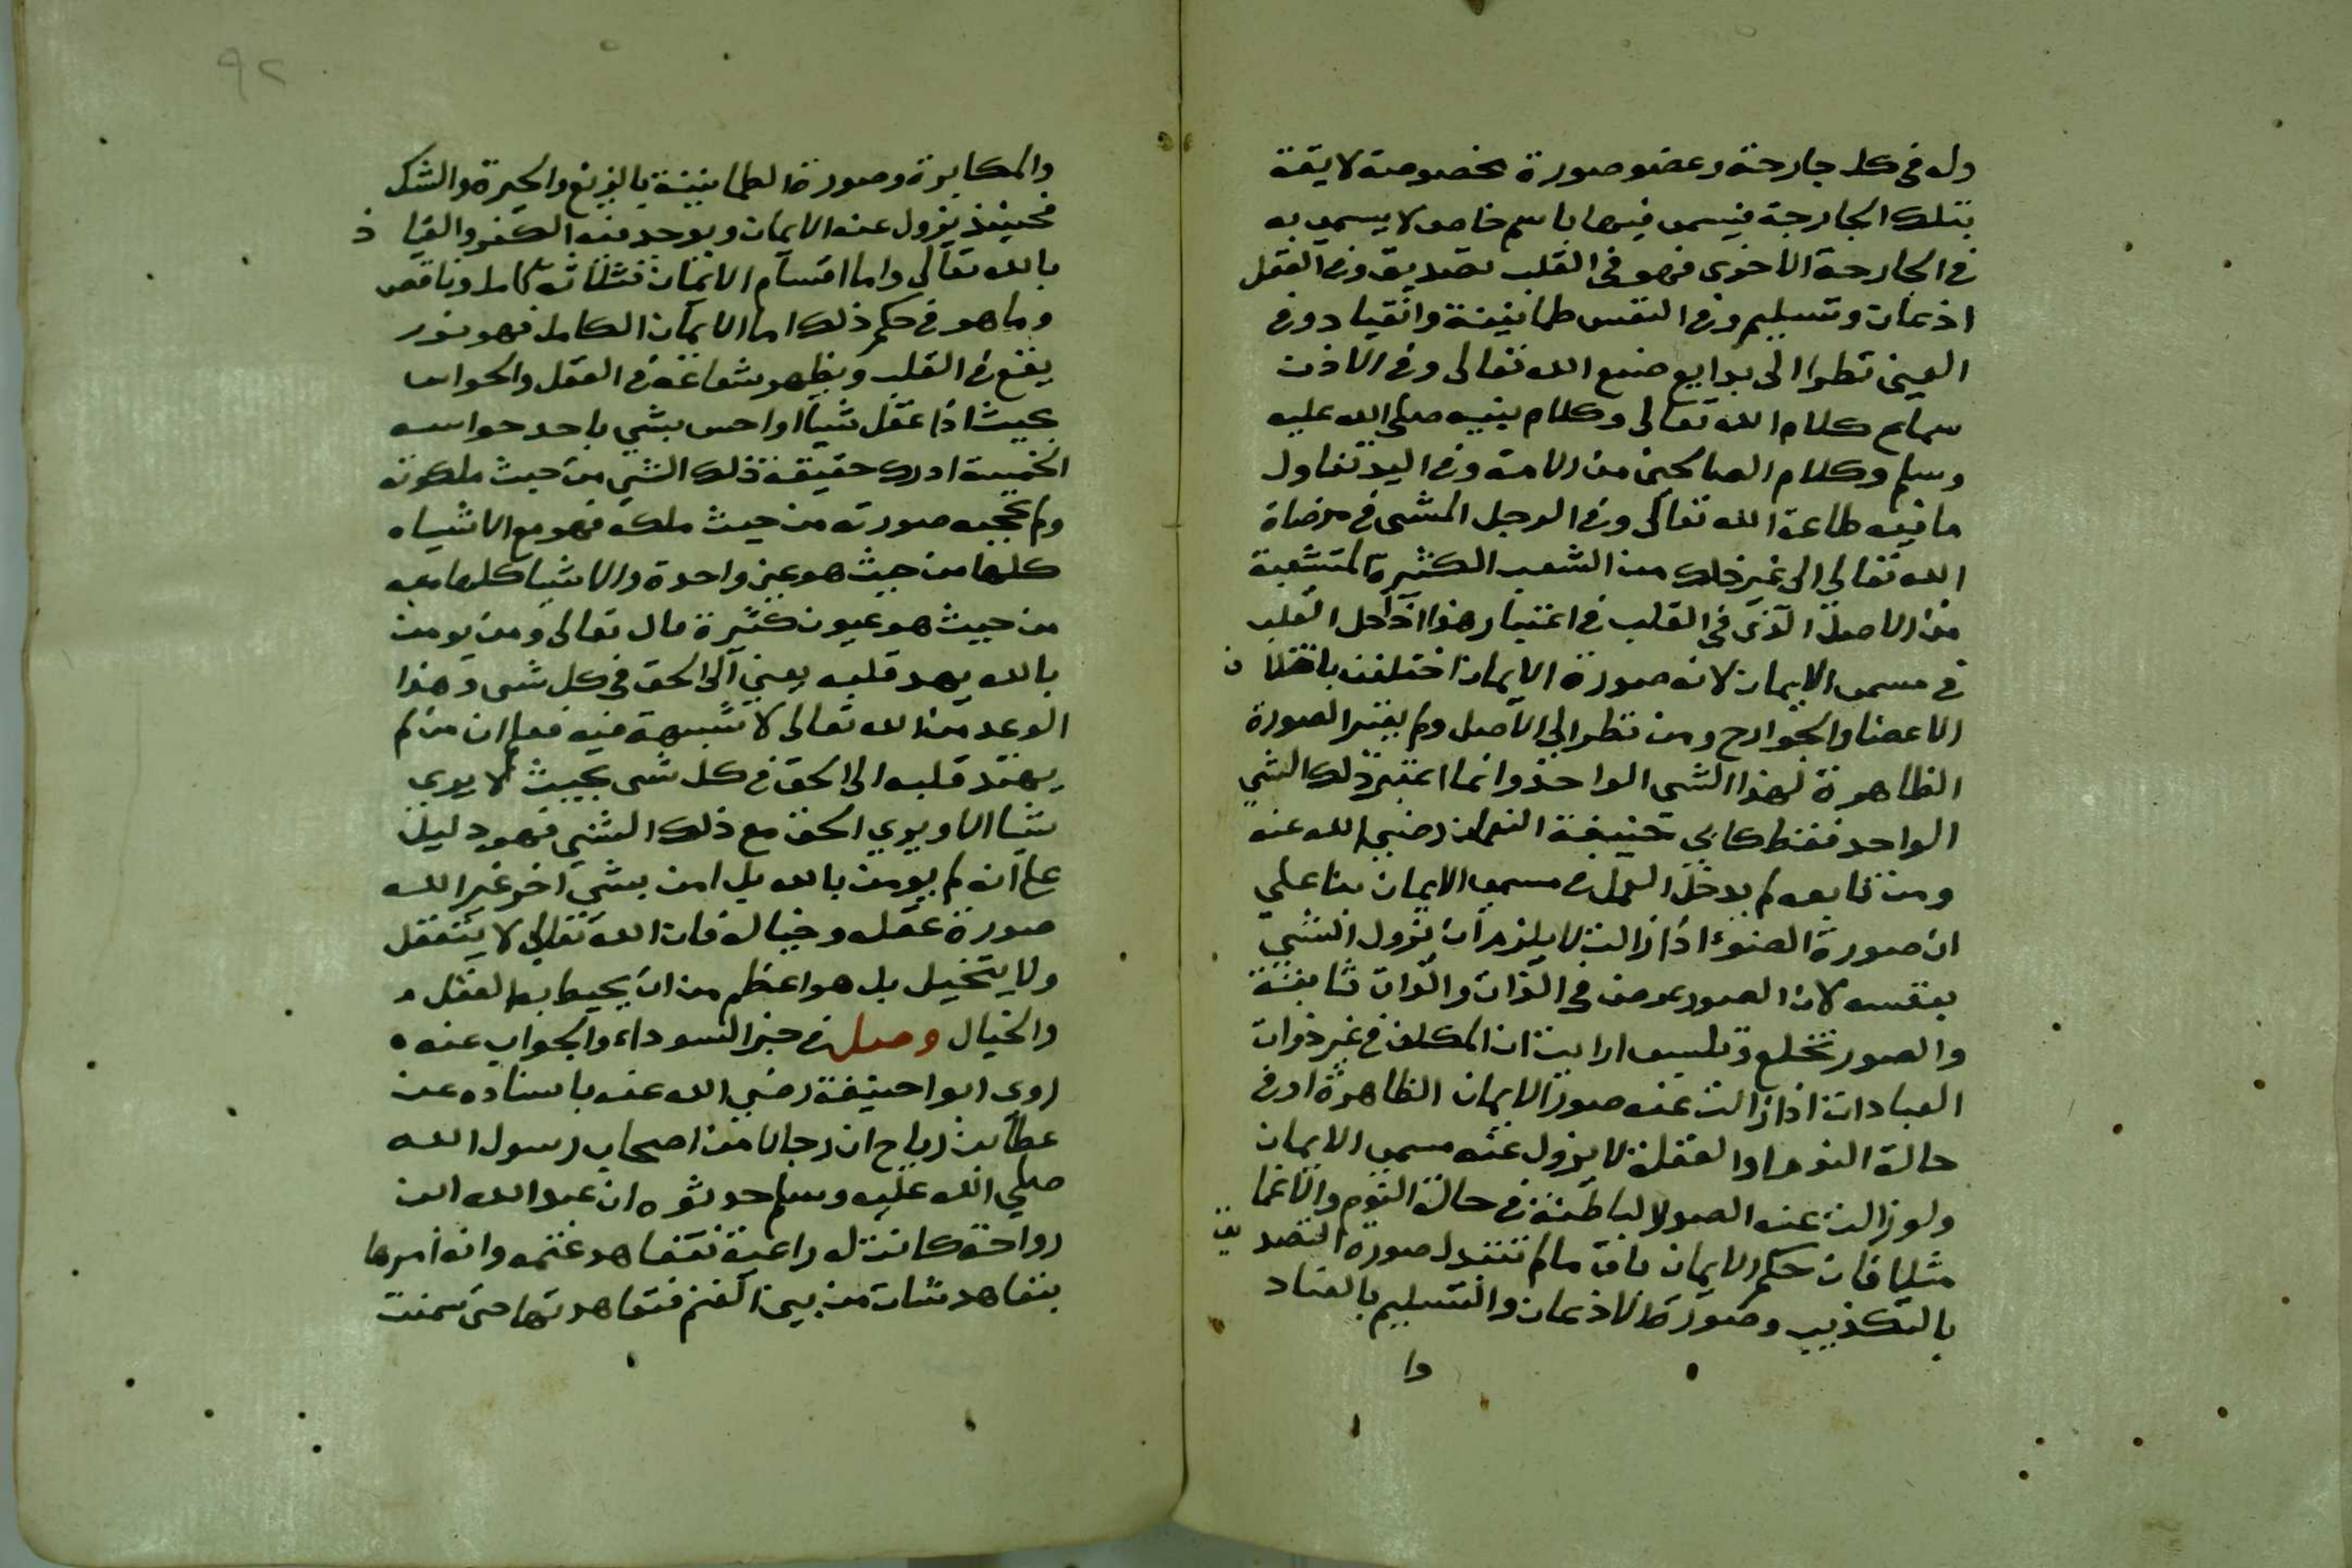 وله في كل جارحة وعضو صورة مخصوصة لايقة
بتلك الجارحة فيسمى فيها باسم خاص لا يسمى به
في الجارحة الاخرى فهو في القلب تصديق وفي العقل
اذعان وتسليم وفي النفس طمانينة وانقياد وفي
العين نظر الى بدايع صنع الله تعالى وفي الاذن
سماع كلام الله تعالى وكلام نبيه صلى الله عليه
وسلم وكلام الصالحين من الامة وفي اليد تناول
ما فيه طاعة الله تعالى وفي الرجل المشى في مرضاة
الله تعالى الى غير ذلك من الشعب الكثيرة المتشعبة
من الاصل الذى في القلب في اعتبار هذا ادخل القلب
في مسمى الايمان لانه صورة الايمان اختلفت باختلاف
الاعضا والجوارح ومن نظر الى الاصل ولم يعتبر الصورة
الظاهرة لهذا الشى الواحد وانما اعتبر ذلك الشي
الواحد فقط كابي حنيفة النعمان رضي الله عنه
ومن تابعه لم يدخل العمل في مسمى الايمان بنا علي
ان صورة الضوء اذا زالت لا يلزم ان يزول الشي
بنفسه لان الصور عرض في الذات والذات ثابتة
والصور تخلع وتلبس ارايت ان المكلف في غير ذوات
العبادات اذا زالت عنه صور الايمان الظاهرة او في
حالة النوم او الغفلة لا يزول عنه مسمى الايمان
ولو زالت عنه الصور الباطنة في حالة النوم والاغما
مثلا فان حكم الايمان باق ما لم تتبدل صورة التصديق
بالتكذيب وصورة الاذعان والتسليم بالعناد
وا
٩٢
والمكابرة وصورة الطمانينة بالزيغ والحيرة والشك
فحينئذ يزول عنه الايمان ويوجد فيه الكفر والعياذ
بالله تعالى واما اقسام الايمان فثلاثة كامل وناقص
وما هو في حكم ذلك اما الايمان الكامل فهو نور
يقع في القلب ويظهر شعاعه في العقل والحواس
بحيث اذا عقل شيا او احس بشي باحد حواسه
الخمسة ادرك حقيقة ذلك الشي من حيث ملكوته
ولم تحجبه صورته من حيث ملكه فهو مع الاشياء
كلها من حيث هو عين واحدة والاشيا كلها معه
من حيث هو عيون كثيرة قال تعالى ومن يومن
بالله يهد قلبه يعني الى الحق في كل شى وهذا
الوعد من الله تعالى لا شبهة فيه فعلم ان من لم
يهتد قلبه الى الحق في كل شى بحيث لا يرى
شيا الا ويري الحق مع ذلك الشي فهو دليل
على انه لم يومن بالله بل امن بشي اخر غير الله
صورة عقله وخياله فان الله تعالى لا يتعقل
ولا يتخيل بل هو اعظم من ان يحيط به العقل
والخيال وصل في خبر السوداء والجواب عنه
روى ابو حنيفة رضي الله عنه باسناده عن
عطا بن رباح ان رجالا من اصحاب رسول الله
صلي الله عليه وسلم حدثوه ان عبد الله ابن
رواحة كانت له راعية تتعاهد غنمه وانه امرها
بتعاهد شاة من بين الغنم فتعاهدتها حتى سمنت